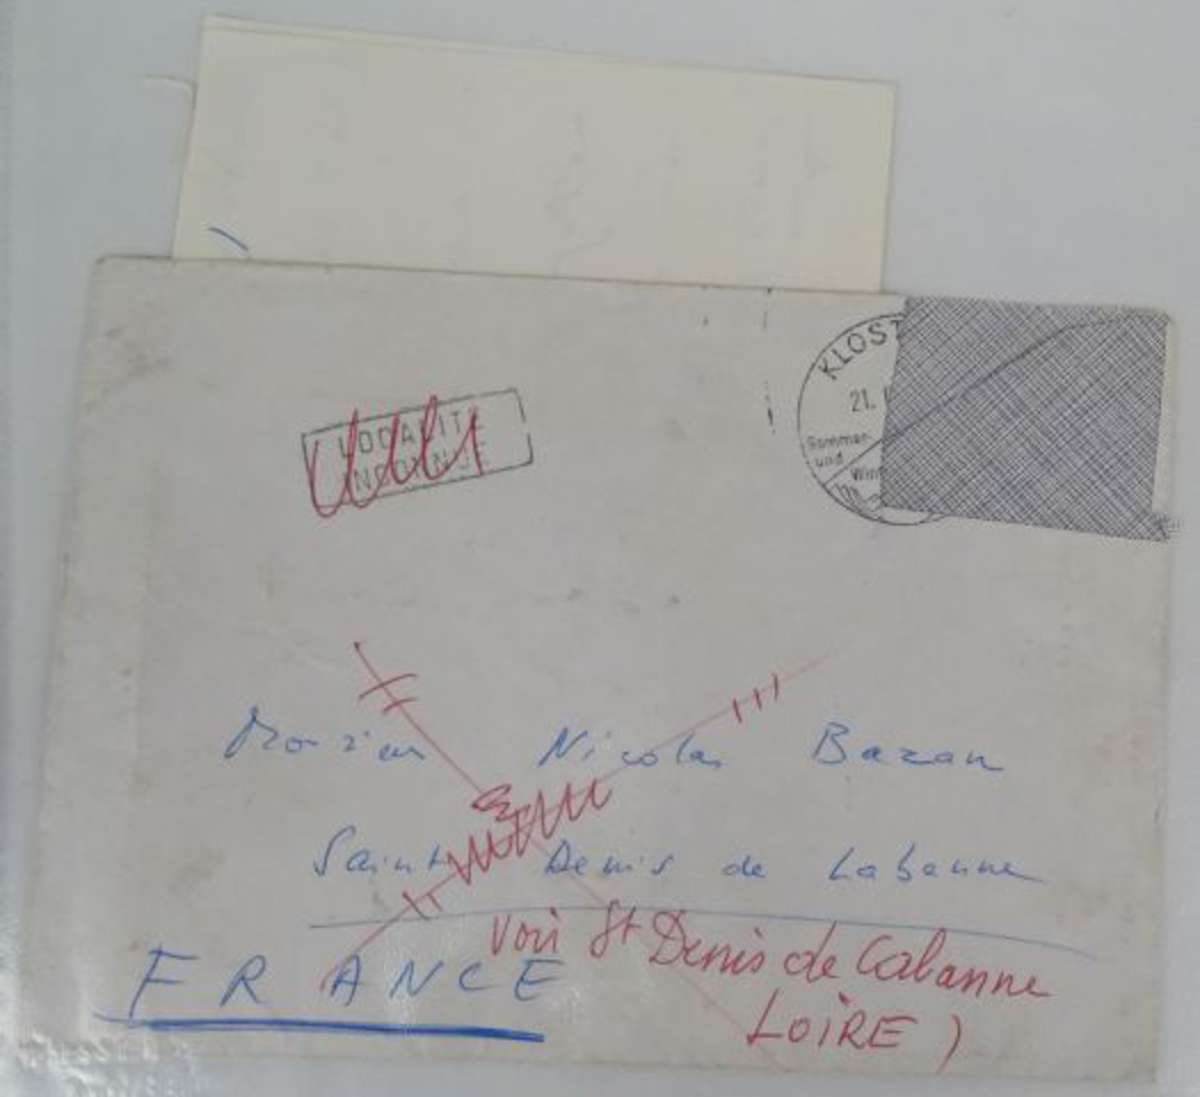 KLOST
21.
Sommer
und
Win
LOCALITE
INCONNUE
Monsieur Nicolas Bazan
Saint Denis de Labanne
voir St Denis de Cabanne
LOIRE )
FRANCE